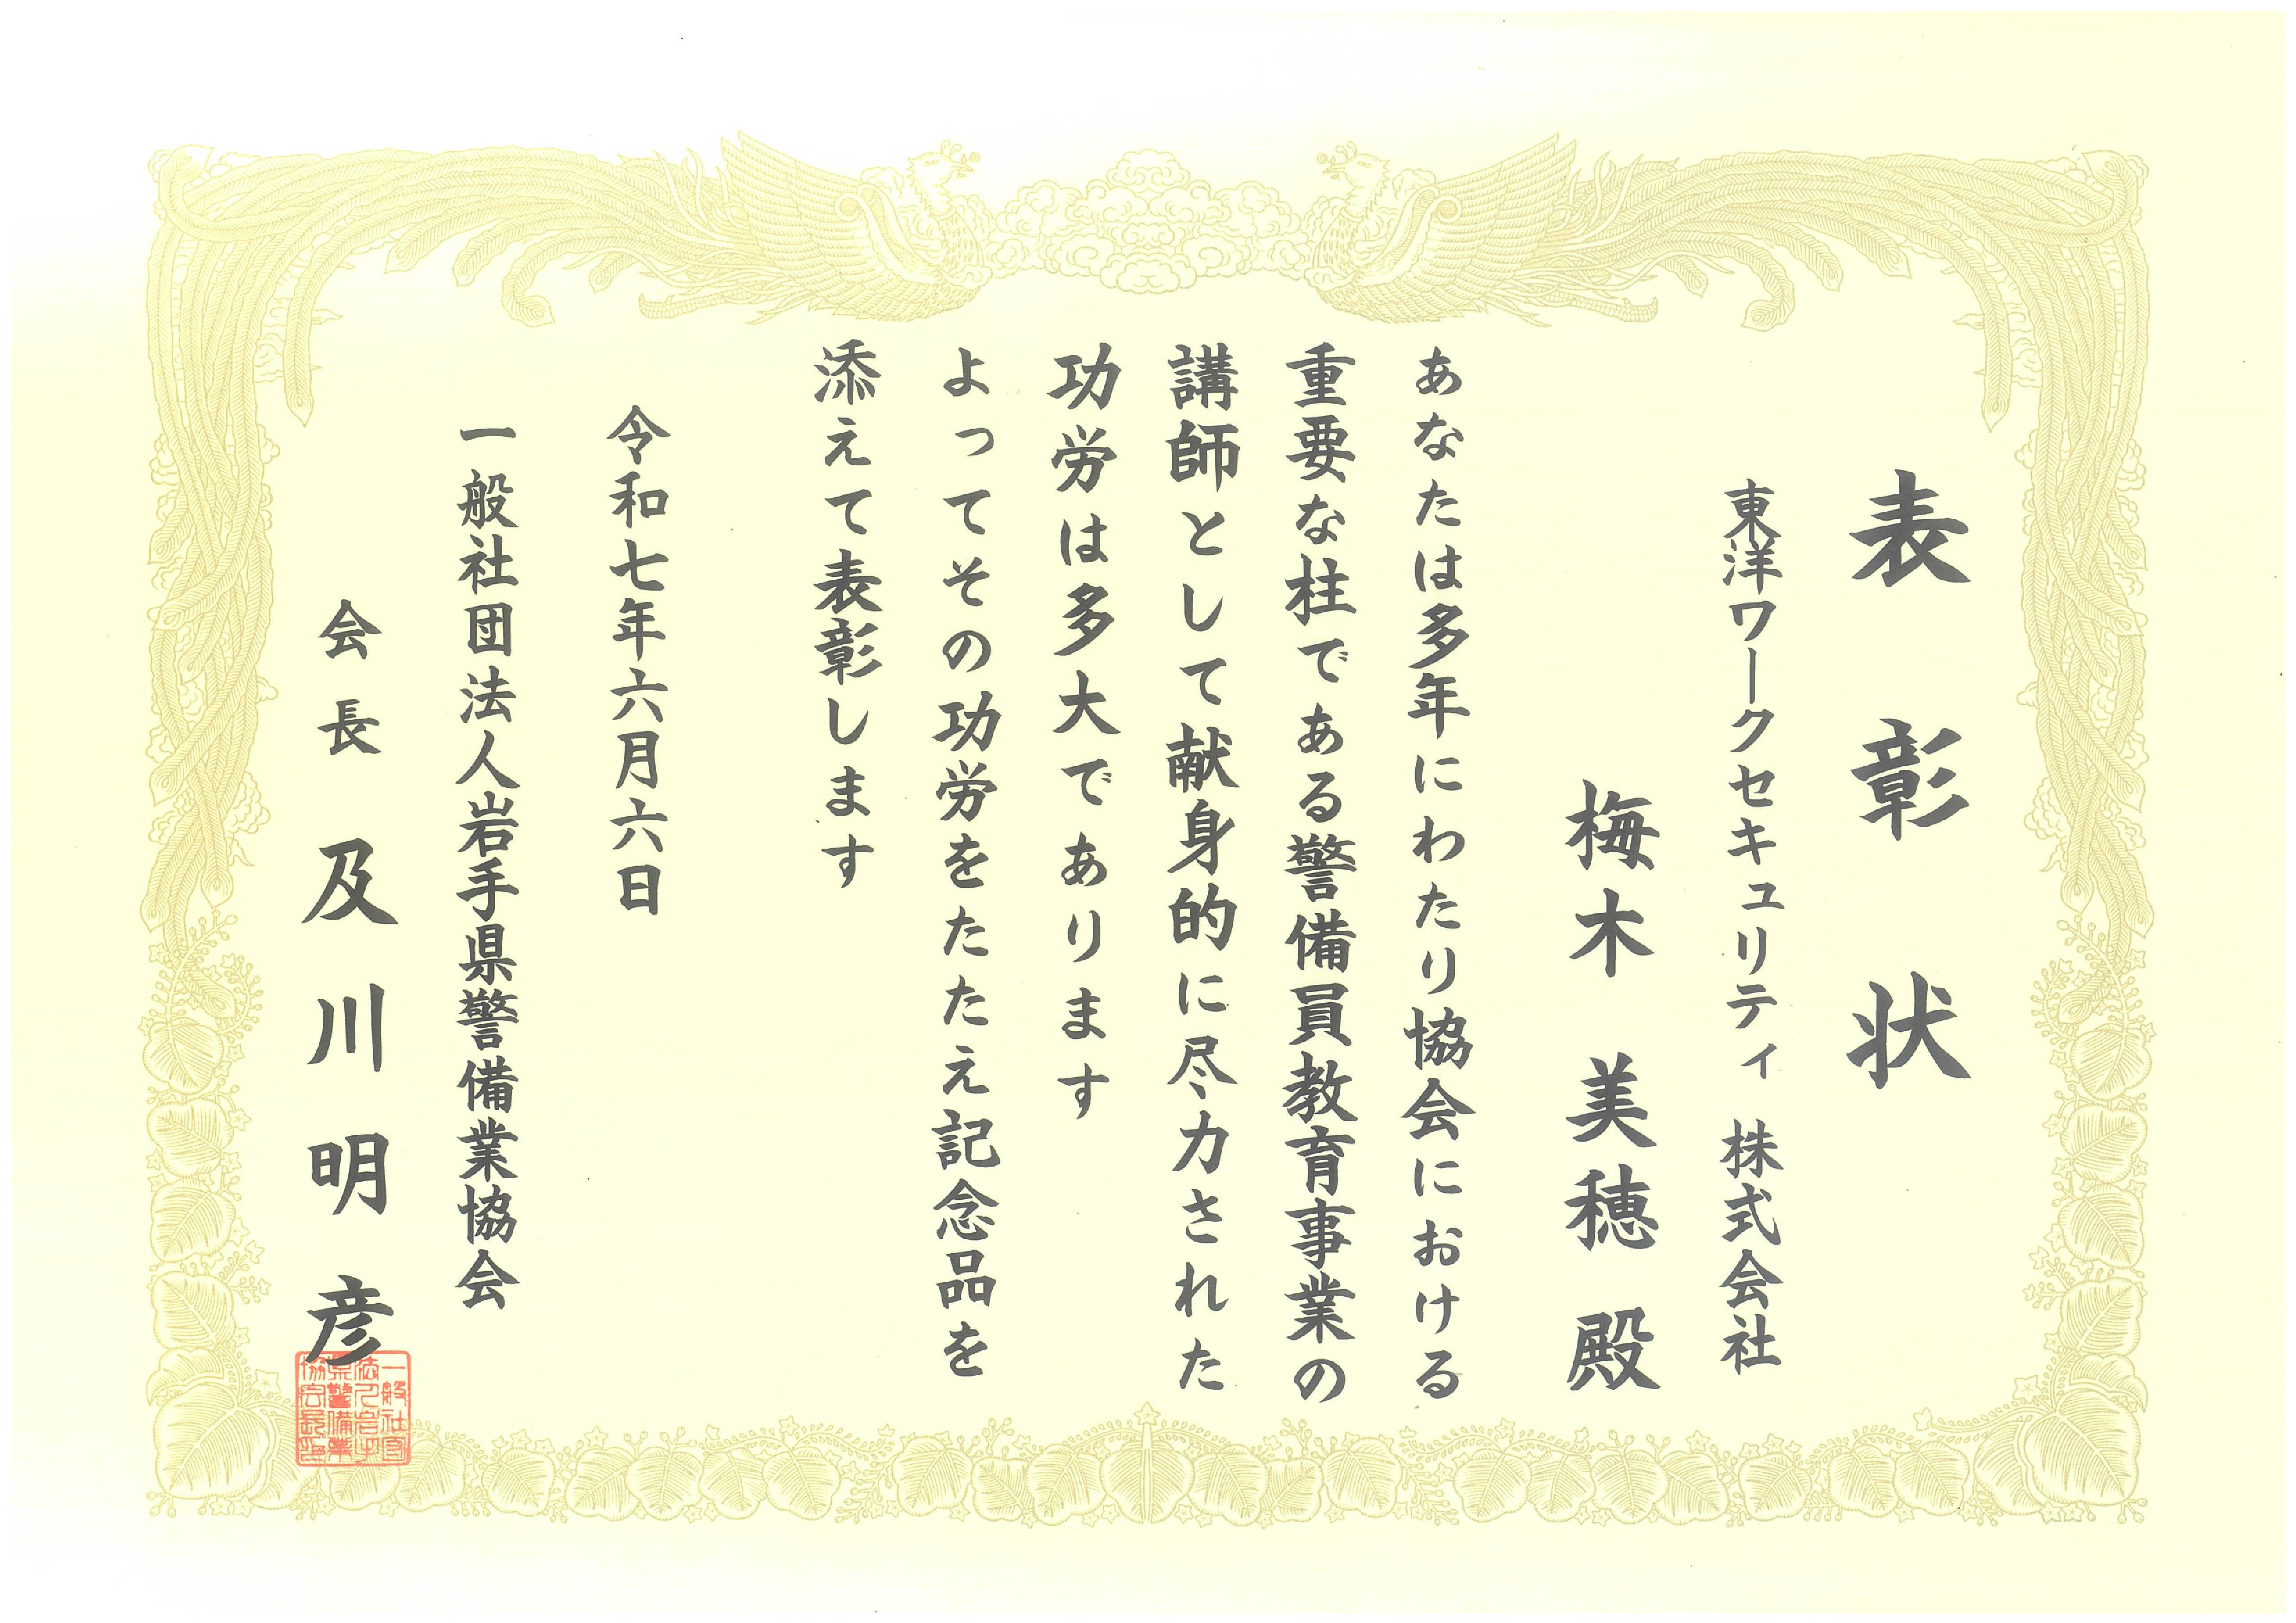 表彰状
東洋ワークセキュリティ 株式会社
梅木 美穂 殿
あなたは多年にわたり協会における
重要な柱である警備員教育事業の
講師として献身的に尽力された
功労は多大であります
よってその功労をたたえ記念品を
添えて表彰します
令和七年六月六日
一般社団法人岩手県警備業協会
会長 及川明彦
一般社団
法人岩手
県警備業
協会長印